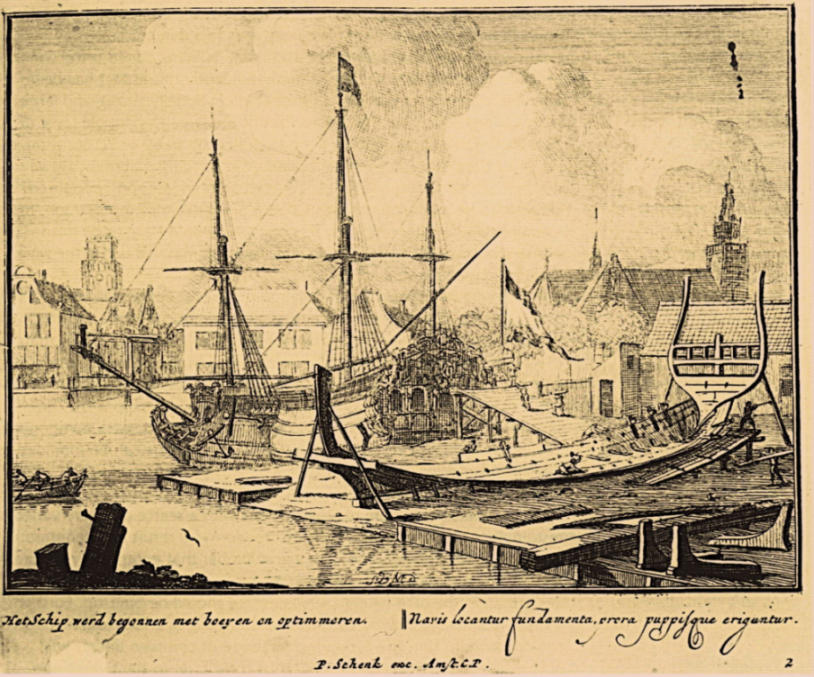 Het Schip werd begonnen met boeyen en optimmeren. Navis locantur fundamenta, prora puppisque eriguntur.
P. Schenk exc. Amst. C.P. 2